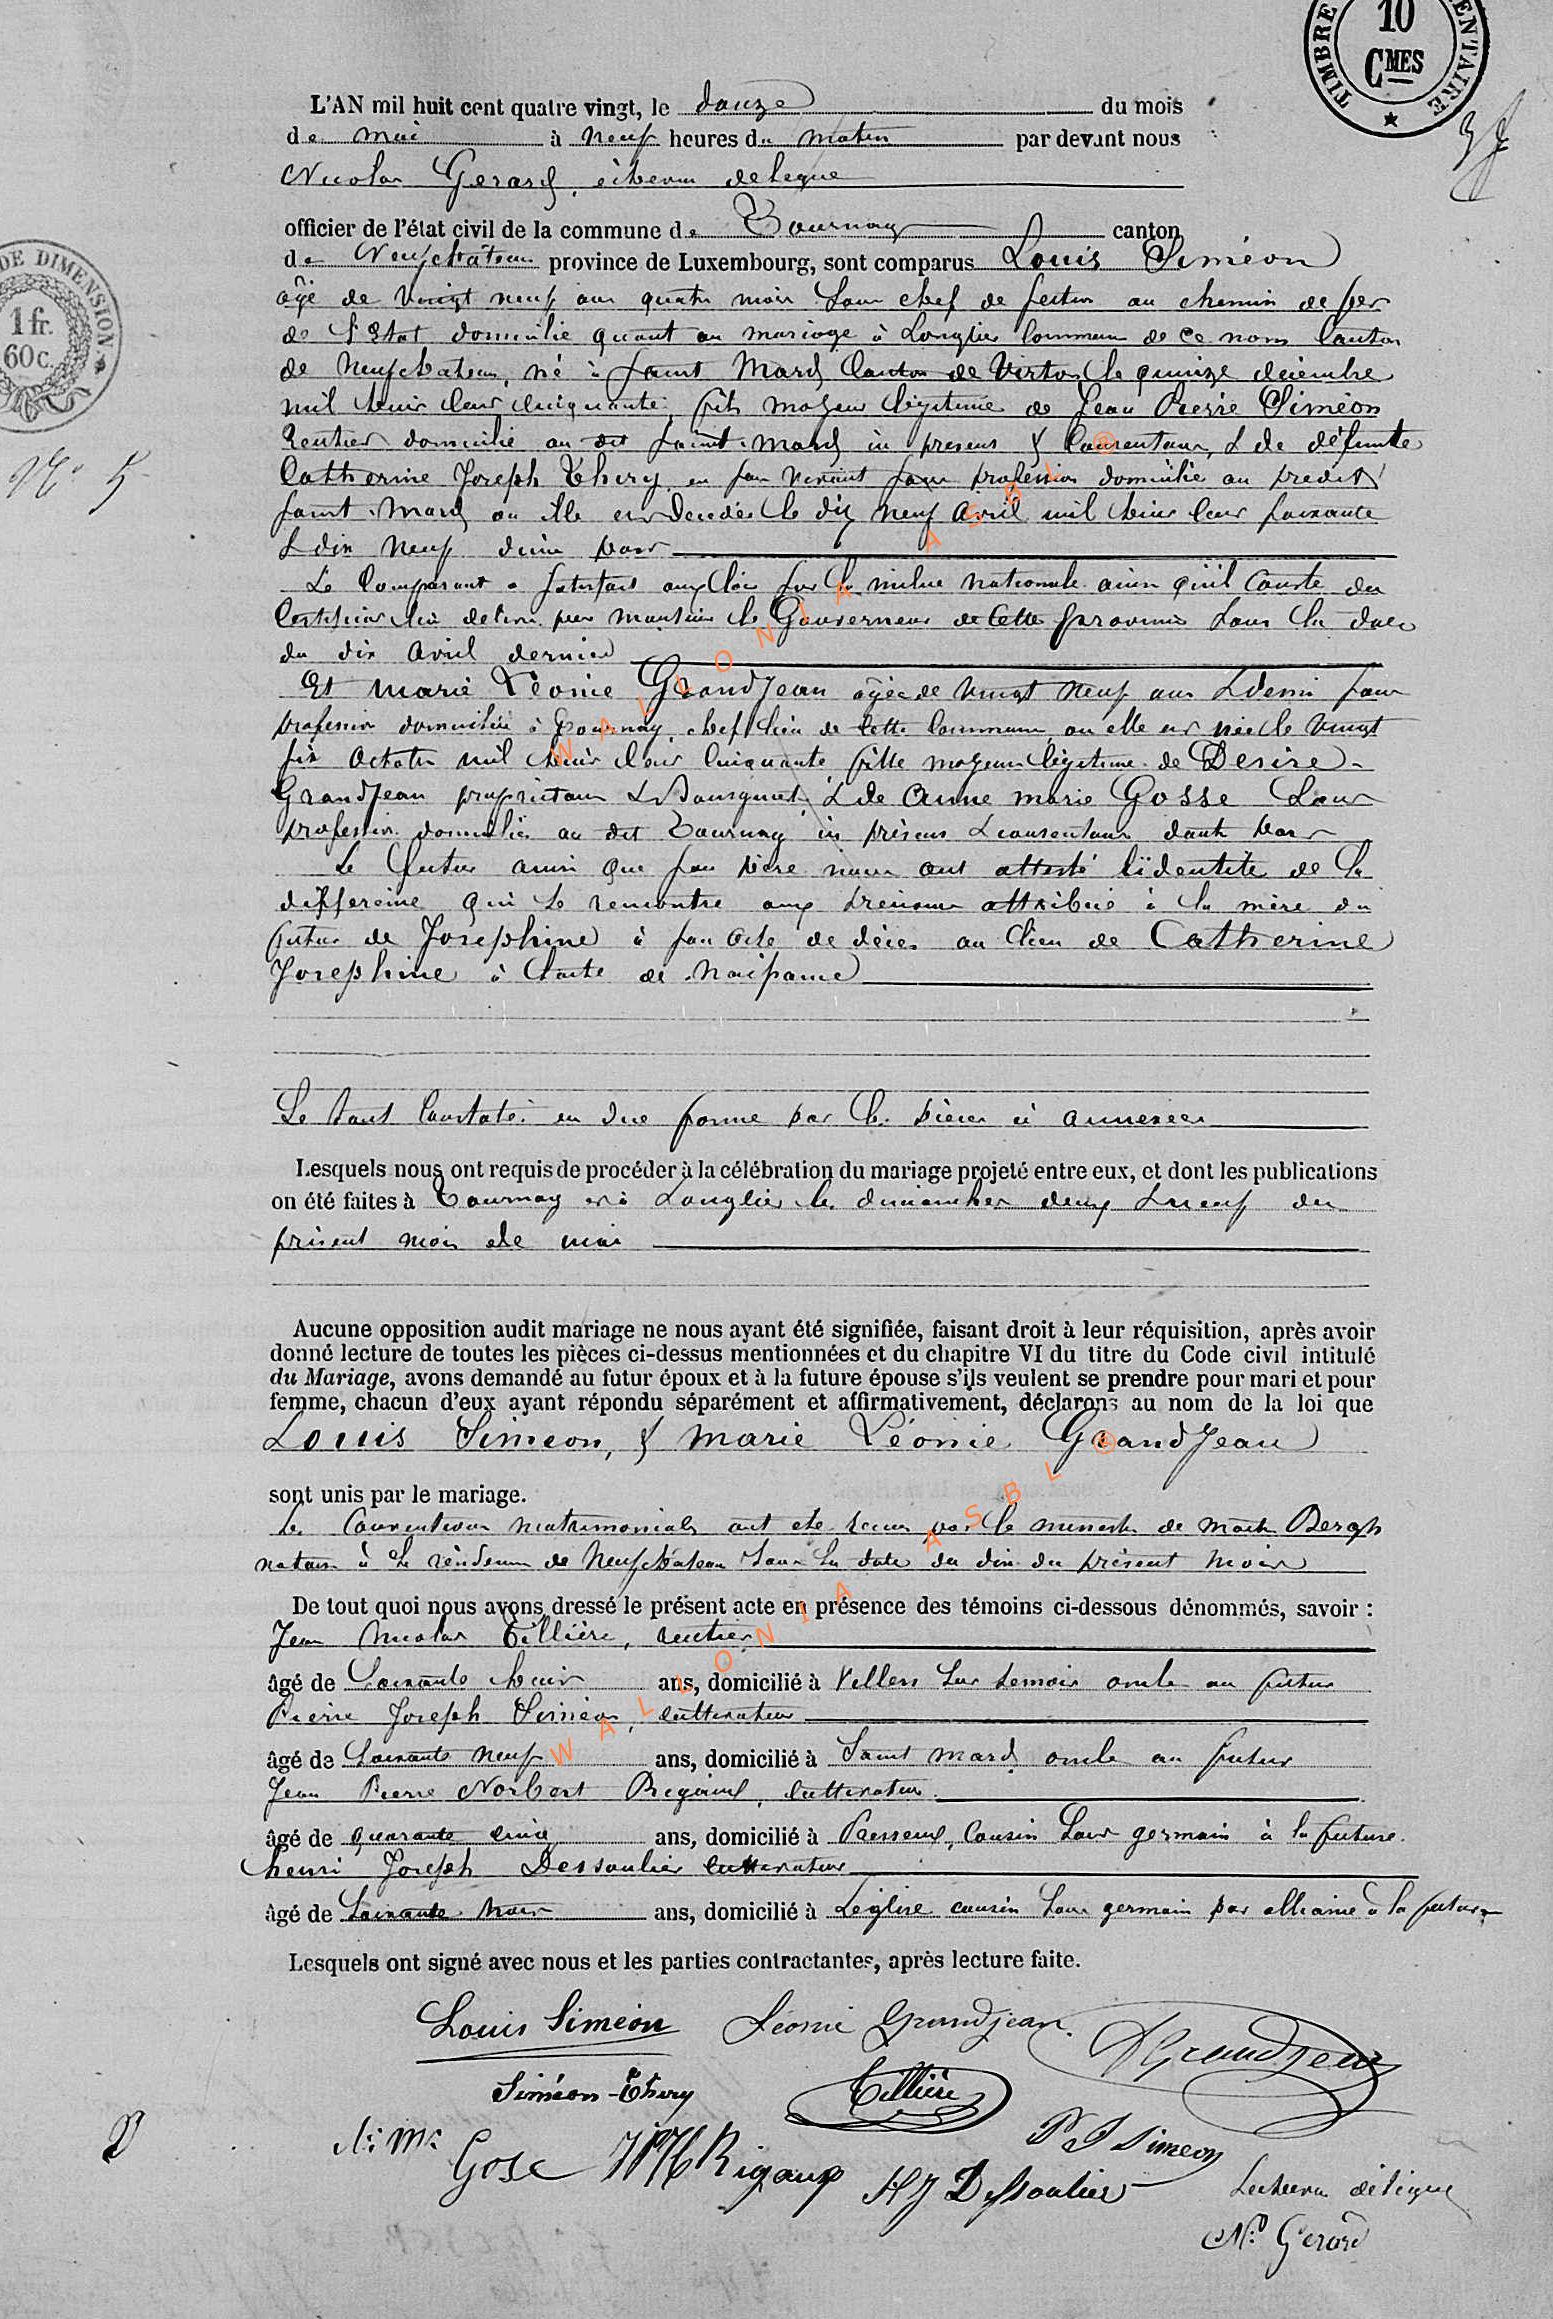 TIMBRE 10 CMES
L'AN mil huit cent quatre vingt, le douze du mois
de mai à neuf heures du matin par devant nous
Nicolas Gerard, échevin delegue
officier de l'état civil de la commune de Tournay canton
de Neufchâteau province de Luxembourg, sont comparus Louis Siméon
DE DIMENSION
1 fr.
60 c.
âgé de vingt neuf ans quatre mois Sous chef de section au chemin de fer
de l'Etat domicilié quant au mariage à Longlier Commune de ce nom Canton
de Neufchateau, né à Saint Mard Canton de Virton le quinze décembre
mil huit cent cinquante, fils majeur légitime de Jean Pierre Siméon
Rentier domicilié au dit Saint-Mard ici present & consentant, & de défunte
Catherine Joseph Thiry en son vivant sans profession domiciliée au predit
N° 5
Saint-Mard ou elle est decedée le dix neuf Avril mil huit cent soixante
& dix neuf d'une part
Le Comparant a satisfait aux lois sur la milice nationale ainsi qu'il Conste du
Certificat lui delivré par Monsieur le Gouverneur de Cette province sous la date
du dix Avril dernier
Et Marie Léonie Grandjean agée de vingt neuf ans & demi sans
profession domiciliée à Tournay, chef lieu de Cette Commune, ou elle est née le vingt
six Octobre mil huit cent Cinquante fille majeure légitime de Desiré
Grandjean propriétaire & Bourgmest. & de Anne Marie Gosse Sans
profession domiciliés au dit Tournay ici présens & consentans d'autre part
Le futur ainsi que son père nous ont attesté l'identité de la
différence qui se rencontre aux prénoms attribués à la mère du
futur de Josephine à son acte de décès au lieu de Catherine
Josephine à l'acte de Naissance
Le tout Constaté en due forme par les pièces ci annexées
Lesquels nous ont requis de procéder à la célébration du mariage projeté entre eux, et dont les publications
on été faites à Tournay et à Longlier les dimanches deux & neuf du
présent mois de mai
Aucune opposition audit mariage ne nous ayant été signifiée, faisant droit à leur réquisition, après avoir
donné lecture de toutes les pièces ci-dessus mentionnées et du chapitre VI du titre du Code civil intitulé
du Mariage, avons demandé au futur époux et à la future épouse s'ils veulent se prendre pour mari et pour
femme, chacun d'eux ayant répondu séparément et affirmativement, déclarons au nom de la loi que
Louis Siméon, & Marie Léonie Grandjean
sont unis par le mariage.
Les Conventions matrimoniales ont été reçues par le ministère de Maître Bergh
notaire à la résidence de Neufchâteau sous la date du dix du présent mois
De tout quoi nous avons dressé le présent acte en présence des témoins ci-dessous dénommés, savoir :
Jean Nicolas Tillière, rentier
âgé de Soixante huit ans, domicilié à Villers Sur Semois oncle au futur
Pierre Joseph Siméon, cultivateur
âgé de Soixante neuf ans, domicilié à Saint Mard oncle au futur
Jean Pierre Norbert Rigaux, cultivateur
âgé de quarante cinq ans, domicilié à Presseux, Cousin Sous germain à la future.
henri Joseph Dessoulier cultivateur
âgé de Soixante trois ans, domicilié à Léglise cousin Sous germain par alliance à la future
Lesquels ont signé avec nous et les parties contractantes, après lecture faite.
Louis Siméon Léonie Grandjean D Grandjean
Siméon-Thiry Tillière
A: M: Gose JPN Rigaux P J Simeon
H J Dessoulier L'echevin délégué
N. Gerard
WALLONIA ASBL ®
WALLONIA ASBL ®